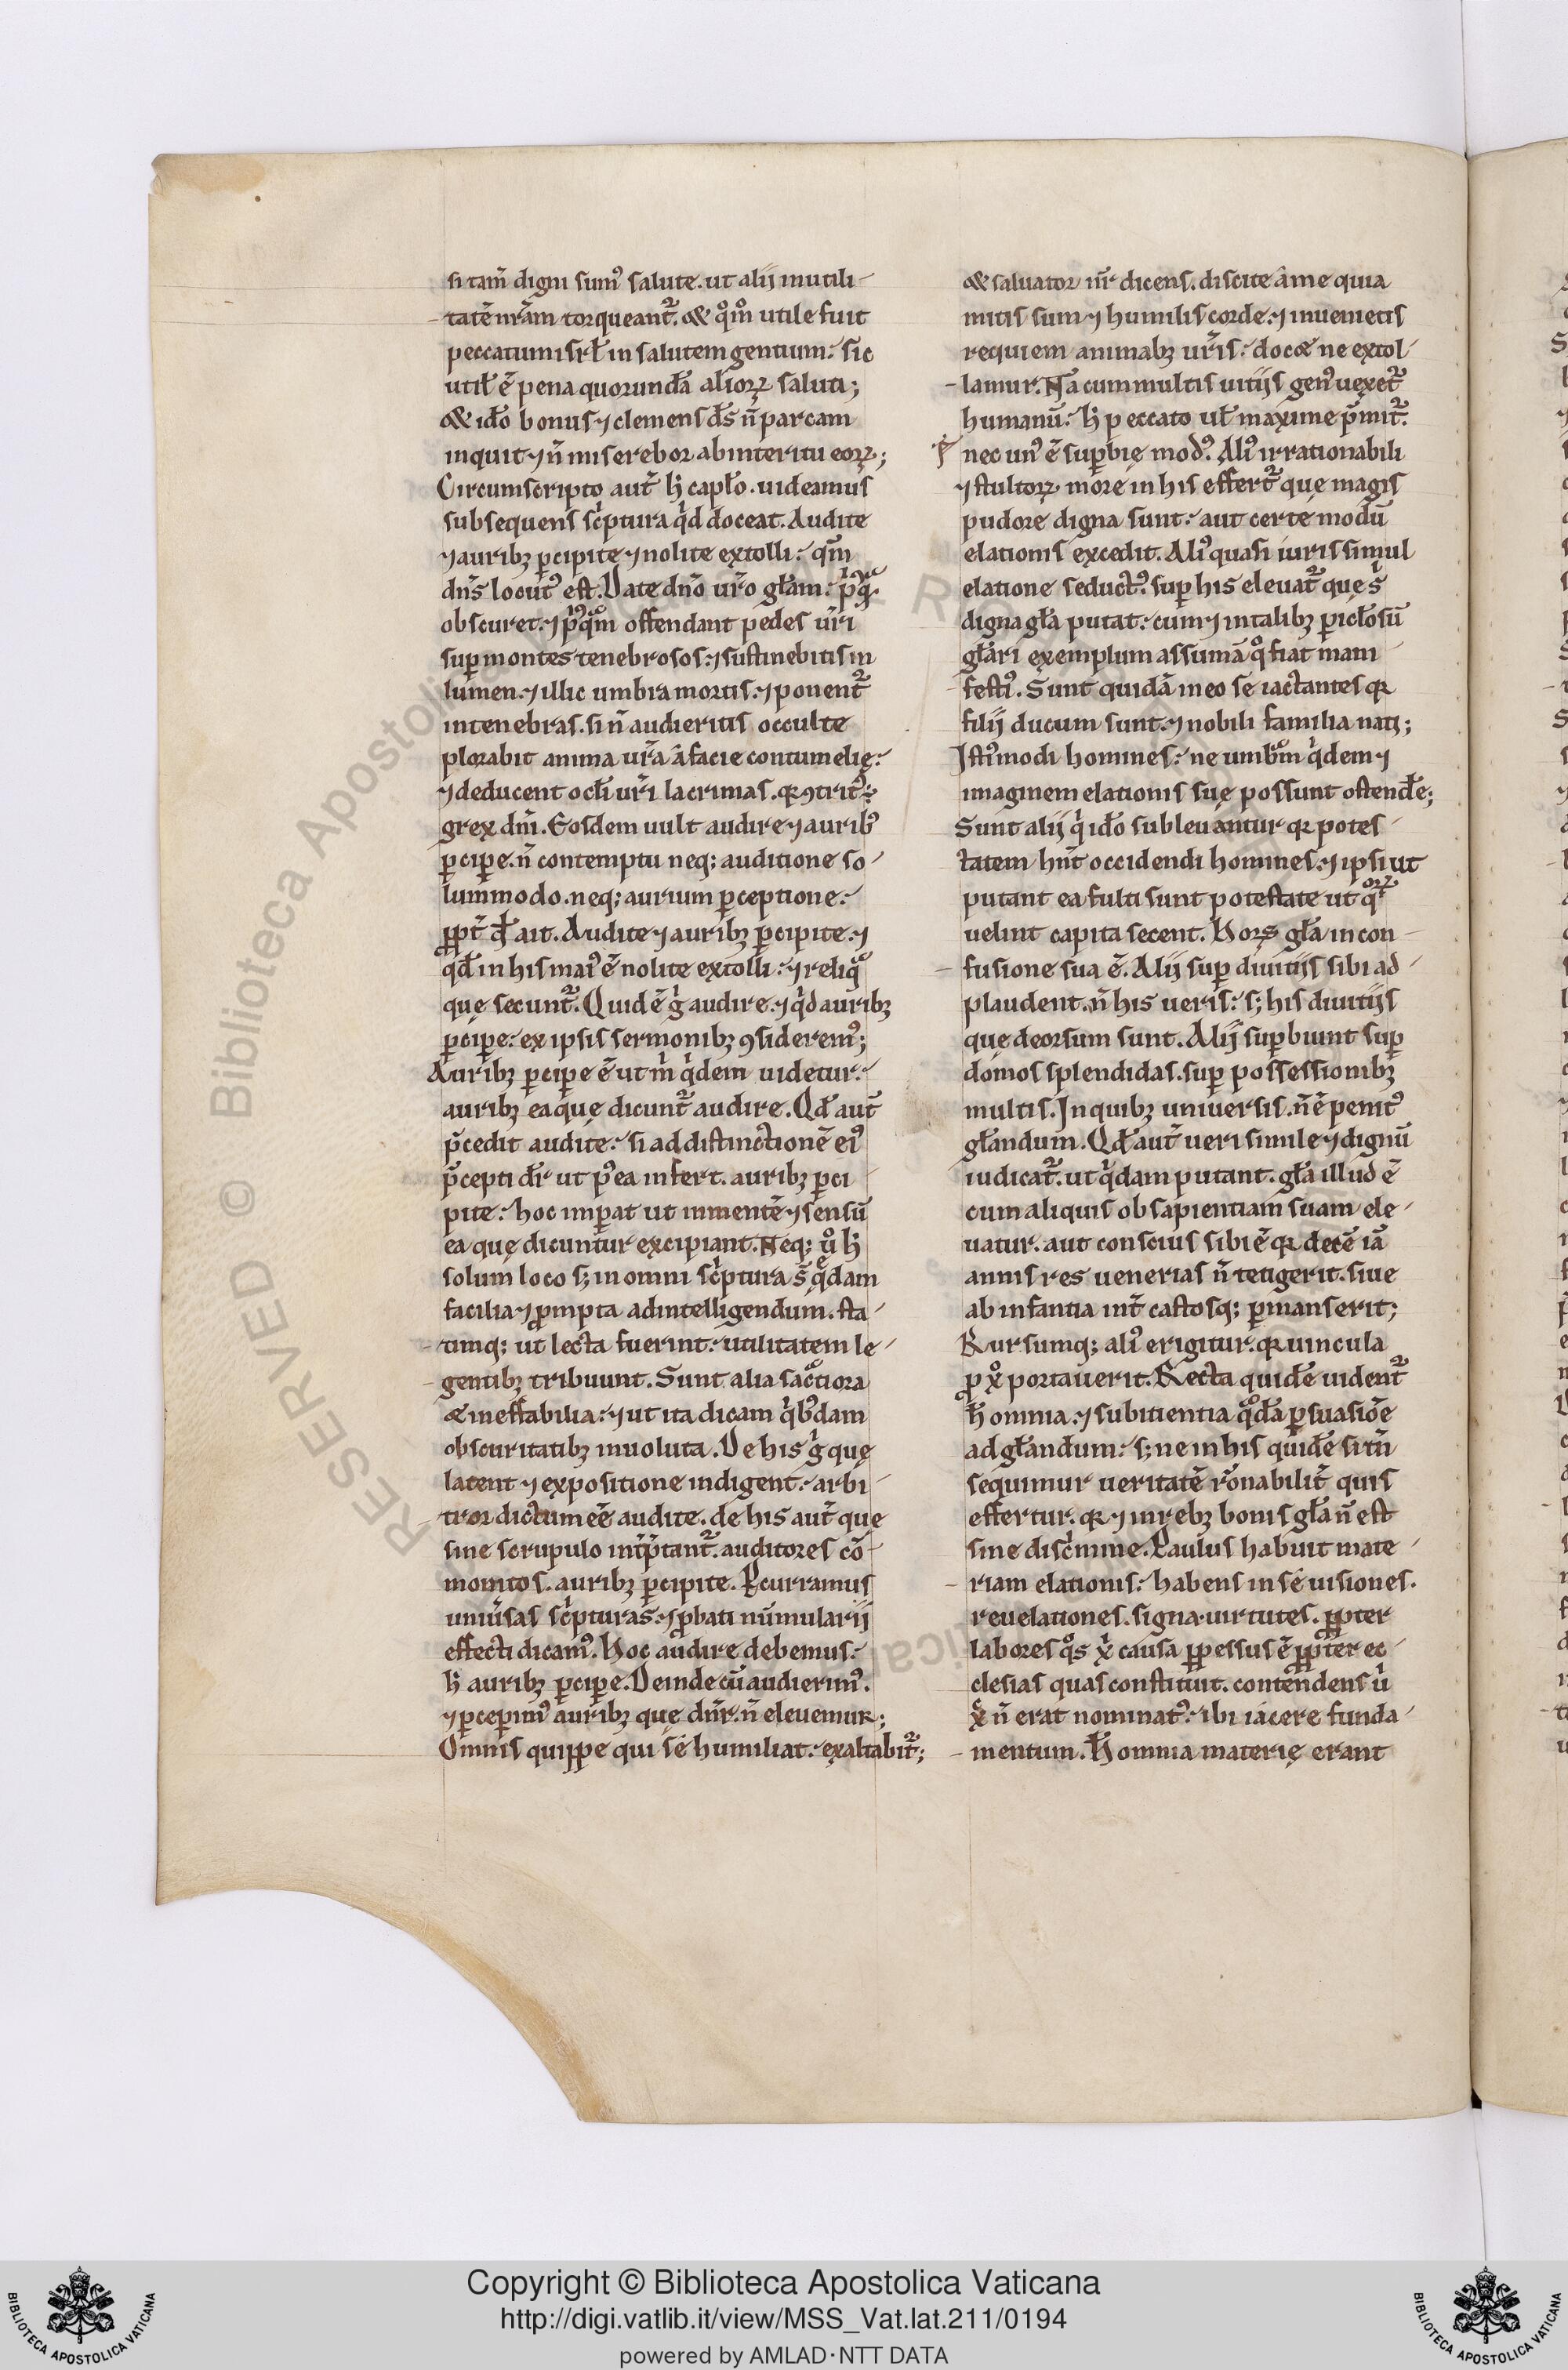 si tam̄ digni sumꝰ salute. ut alij inutili-
tatē nr̄am torqueant᷑. & qm̊ utile fuit
peccatum isrł in salutem gentium: sic
utił ē pena quorundā alioꝝ saluti;
& iđo bonus ⁊ clemens ds̄ n̄ parcam
inquit ⁊ n̄ miserebor ab interitu eoꝝ;
Circumscripto aut̄ h̓ capło. uideamus
subsequens sc͛ptura qͥd doceat. Audite
⁊ auribꝫ ꝑcipite ⁊ nolite extolli: qm̄
dn̄s locutꝰ est. Date dn̄o ur̄o głam:
obscuret. ⁊ offendant pedes ur̄i
suꝑ montes tenebrosos: ⁊ sustinebitis in
lumen. ⁊ illic umbra mortis: ⁊ ponent᷑
in tenebras. si n̄ audieritis occulte
plorabit anima ur̄a a facie contumelię:
⁊ deducent ocłi ur̄i lacrimas. qꝛ ꝯtritꝰ ē
grex dn̄i. Eosdem uult audire ⁊ auribꝰ
ꝑcipe. n̄ contemptu neq; auditione so-
lummodo. neq; aurium ꝑceptione:
ꝓpt̄ qđ ait. Audite ⁊ auribꝫ ꝑcipite. ⁊
qđ in his maiꝰ ē nolite extolli: ⁊ reliqͣ
quę secunt᷑. Quid ē gͥ audire. ⁊ qͥd auribꝫ
ꝑcipe: ex ipsis sermonibꝫ ꝯsideremꝰ;
Auribꝫ ꝑcipe ē ut mͥ qͥdem uidetur:
auribꝫ ea quę dicunt᷑ audire. Qđ aut̄
p̄cedit audite: si ad distinctionē eiꝰ
p̄cepti dr̄ ut pꝰea infert. auribꝫ ꝑci
pite: hoc imꝑat ut in mentē ⁊ sensū
ea quę dicuntur excipiant. Neq; uͦ h̓
solum loco s; in omni sc͛ptura s̄ qͣdam
facilia ⁊ ꝓmpta ad intelligendum. sta-
timq; ut lecta fuerint: utilitatem le-
gentibꝫ tribuunt. Sunt alia sacͣtiora
& ineffabilia: ⁊ ut ita dicam qͥbꝰdam
obscuritatibꝫ inuoluta. De his gͥ quę
latent ⁊ expositione indigent: arbi-
tror dictum eē audite. de his aut̄ que
sine scrupulo int̄p̄tant᷑. auditores cō-
monitos. auribꝫ ꝑcipite. Rcurramus
uniūsas sc͛pturas: ⁊ ꝓbati nūmularij
effecti dicamꝰ. Hoc audire debemus:
h̓ auribꝫ ꝑcipe. Deinde cū audierimꝰ.
⁊ ꝑceꝑimꝰ auribꝫ quę dn̄r. n̄ eleuemur;
Omnis quippe qui se humiliat: exaltabit᷑;
& saluator nr̄ dicens. discite a me quia
mitis sum ⁊ humilis corde. ⁊ inuenietis
requiem animabꝫ ur̄is: doc& ne extol-
lamur. Nā cum multis uitijs genꝰ uexet᷑
humanū: h̓ peccato uł maxime p̄mit᷑.
nec unꝰ ē suꝑbię modꝰ. Aliꝰ irrationabili
⁊ stultoꝝ more in his effert᷑ quę magis
pudore digna sunt: aut certe modū
elationis excedit. Aliꝰ quasi iuris simul
elatione seductꝰ: suꝑ his eleuat᷑ quę s̄
digna gła putat: cum ⁊ in talibꝫ ꝑicłosū
głari exemplum assumā qͦ fiat mani-
festiꝰ. Sunt quidā in eo se iactantes qꝛ
filij ducum sunt. ⁊ nobili familia nati;
Istiꝰmodi homines: ne umbrͣm qͥdem ⁊
imaginem elationis suę possunt ostende;
Sunt alij qͥ iđo subleuantur qꝛ potes-
tatem hn̄t occidendi homines: ⁊ ipsi ut
putant ea fulti sunt potestate ut qͦꝝ
uelint capita secent. Hoꝝ gła in con-
fusione sua ē. Alij suꝑ diuitijs sibi ad-
plaudent. n̄ his ueris: s; his diuitijs
quę deorsum sunt. Alij suꝑbiunt suꝑ
domos splendidas. suꝑ possessionibꝫ
multis. In quibꝫ uniuersis. n̄ ē penitꝰ
głandum. Qđ aut̄ ueri simile ⁊ dignū
iudicat᷑. ut qͥdam putant. gła illud ē
cum aliquis ob sapientiam suam ele-
uatur. aut conscius sibi ē qꝛ decē iā
annis res uenerias n̄ tetigerit. siue
ab infantia int̄ castosq; ꝑmanserit;
Rursumq; aliꝰ erigitur. qꝛ uincula
ꝓ xͦ portauerit. Recta quidē uident᷑
h̄ omnia. ⁊ subitientia qͣdā ꝑsuasiōe
ad głandum: s; ne in his quidē si tn̄
sequimur ueritatē ro̅nabilit̄ quis
effertur. qꝛ ⁊ in rebꝫ bonis gła n̄ est
sine disc͛mine. Paulus habuit mate-
riam elationis: habens in se uisiones.
reuelationes. signa. uirtutes. ꝓpter
labores qͦs xͥ causa ꝑpessus ē ꝓpter ec-
clesias quas constituit. contendens uͥ
xͨ n̄ erat nominatꝰ: ibi iacere funda-
mentum. H̄ omnia materię erant
RESERVED © Biblioteca Apostolica
Copyright © Biblioteca Apostolica Vaticana
http://digi.vatlib.it/view/MSS_Vat.lat.211/0194
powered by AMLAD·NTT DATA
BIBLIOTECA APOSTOLICA VATICANA
BIBLIOTECA APOSTOLICA VATICANA